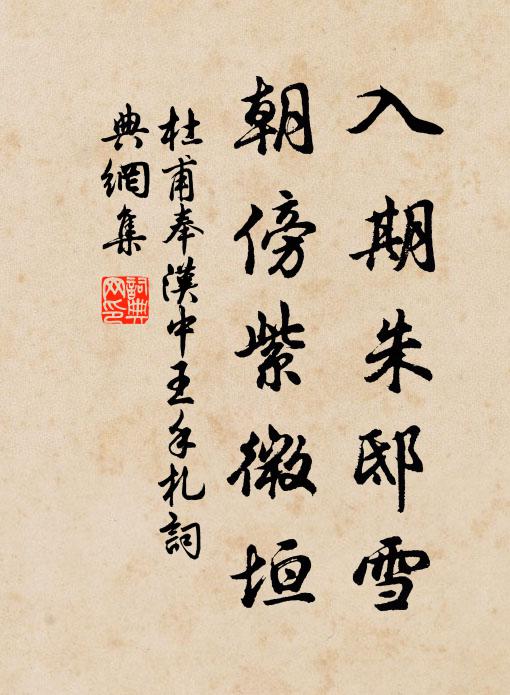 入期朱邸雪
朝傍紫微垣
杜甫奉漢中王手札詞
典網集
詞典
网印